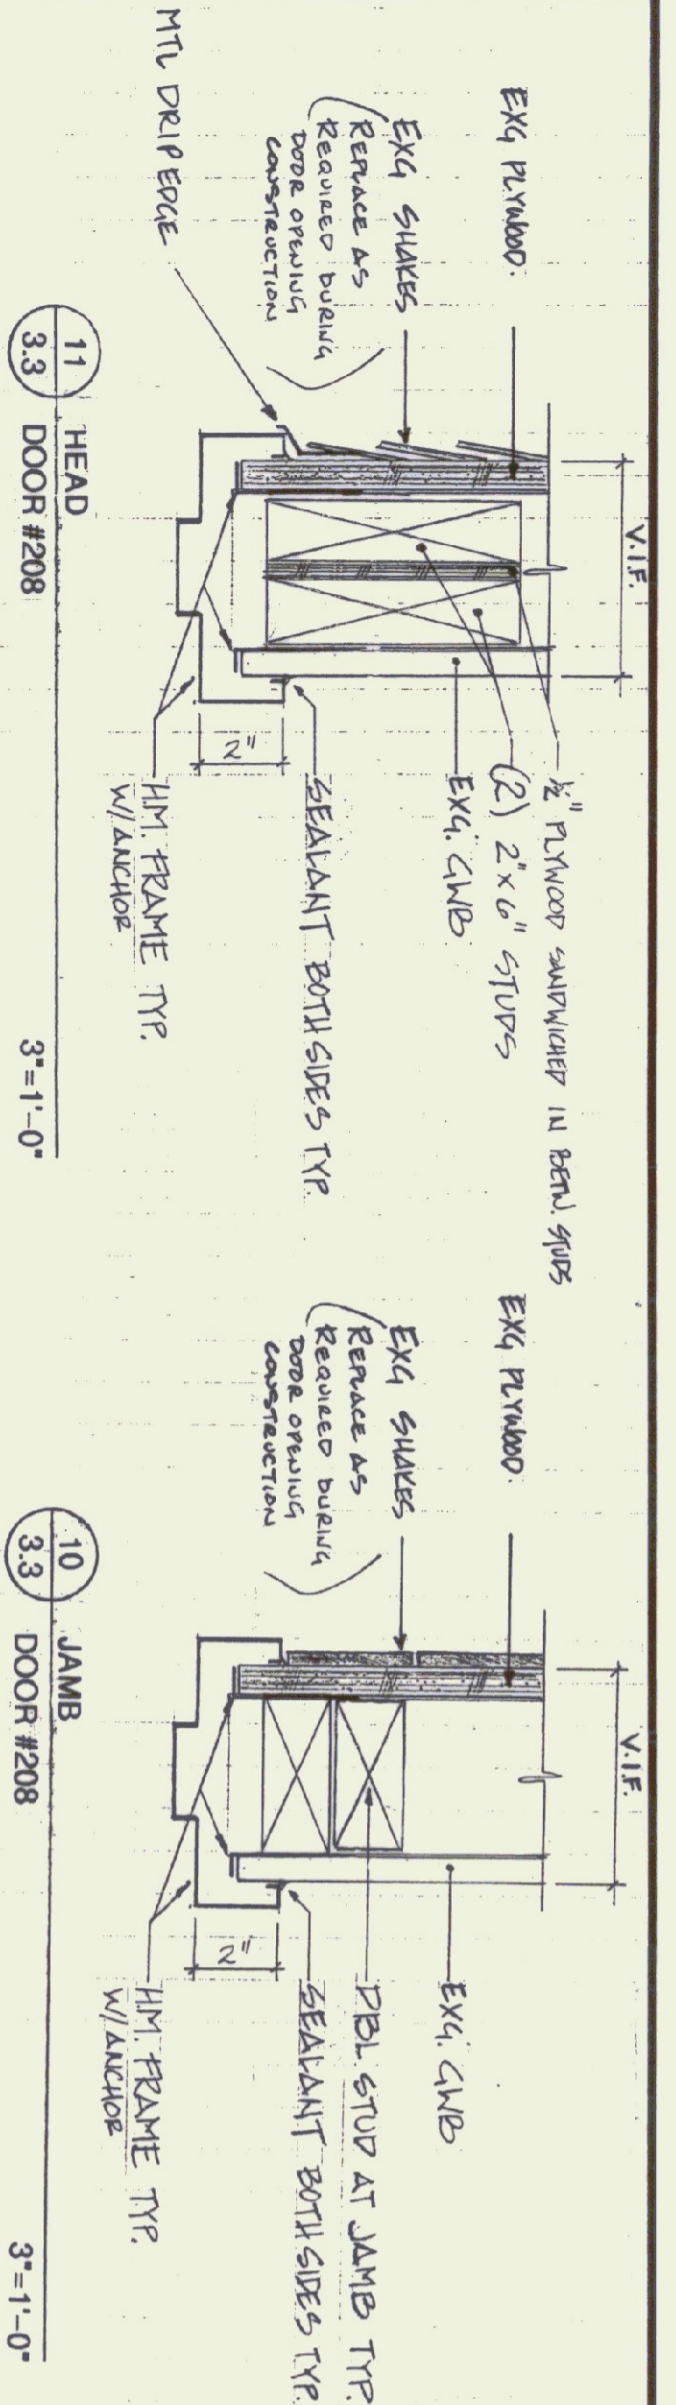 V.I.F.
EXG PLYWOOD.
EXG SHAKES
(REPLACE AS
REQUIRED DURING
DOOR OPENING
CONSTRUCTION)
MTL DRIP EDGE
1/2" PLYWOOD SANDWICHED IN BETW. STUDS
(2) 2"x6" STUDS
EXG. GWB
SEALANT BOTH SIDES TYP.
2"
H.M. FRAME TYP.
W/ANCHOR
11
3.3
HEAD
DOOR #208
3"=1'-0"
V.I.F.
EXG PLYWOOD.
EXG SHAKES
(REPLACE AS
REQUIRED DURING
DOOR OPENING
CONSTRUCTION)
EXG. GWB
DBL. STUD AT JAMB TYP.
SEALANT BOTH SIDES TYP.
2"
H.M. FRAME TYP.
W/ANCHOR
10
3.3
JAMB
DOOR #208
3"=1'-0"